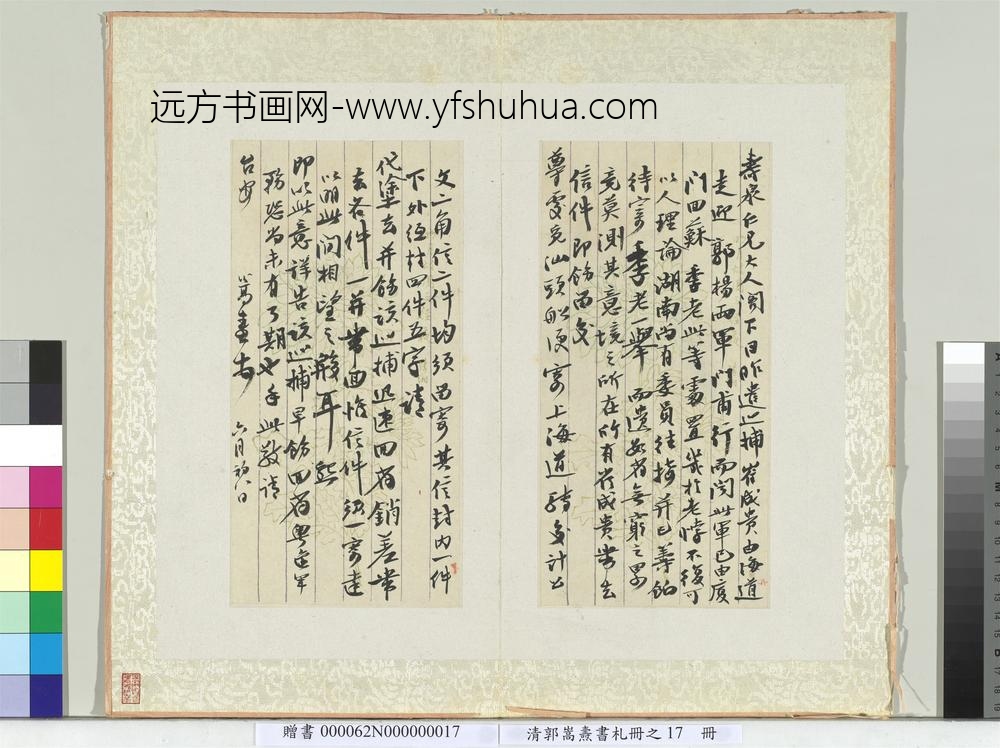 远方书画网-www.yfshuhua.com
壽泉仁兄大人閣下日昨遣巡捕崔成貴由海道
走迎 郭楊兩軍門甫行而聞此軍已由廈
門回蘇 季老此等處置幾於老悖不復可
以人理論湖南尚有委員往換并已籌餉
待寄 季老一舉 而遺各省無窮之累
竟莫測其意境之所在所有崔成貴帶去
信件即飭留交
尊處覓汕頭船便寄上海道轉交計公
文一角信二件均須留寄其信封內一件
下外繳村四件五字請
代塗去并飭該巡捕迅速回省銷差帶
去各件一并帶回惟信件須一寄達
以明此間相望之殷耳 熙
即以此意詳告該巡捕早飭回省粵逆軍
務恐尚未有了期也手此敬請
台安
嵩燾頓首 六月初八日
贈書 000062N000000017
清郭嵩燾書札冊之 17 冊